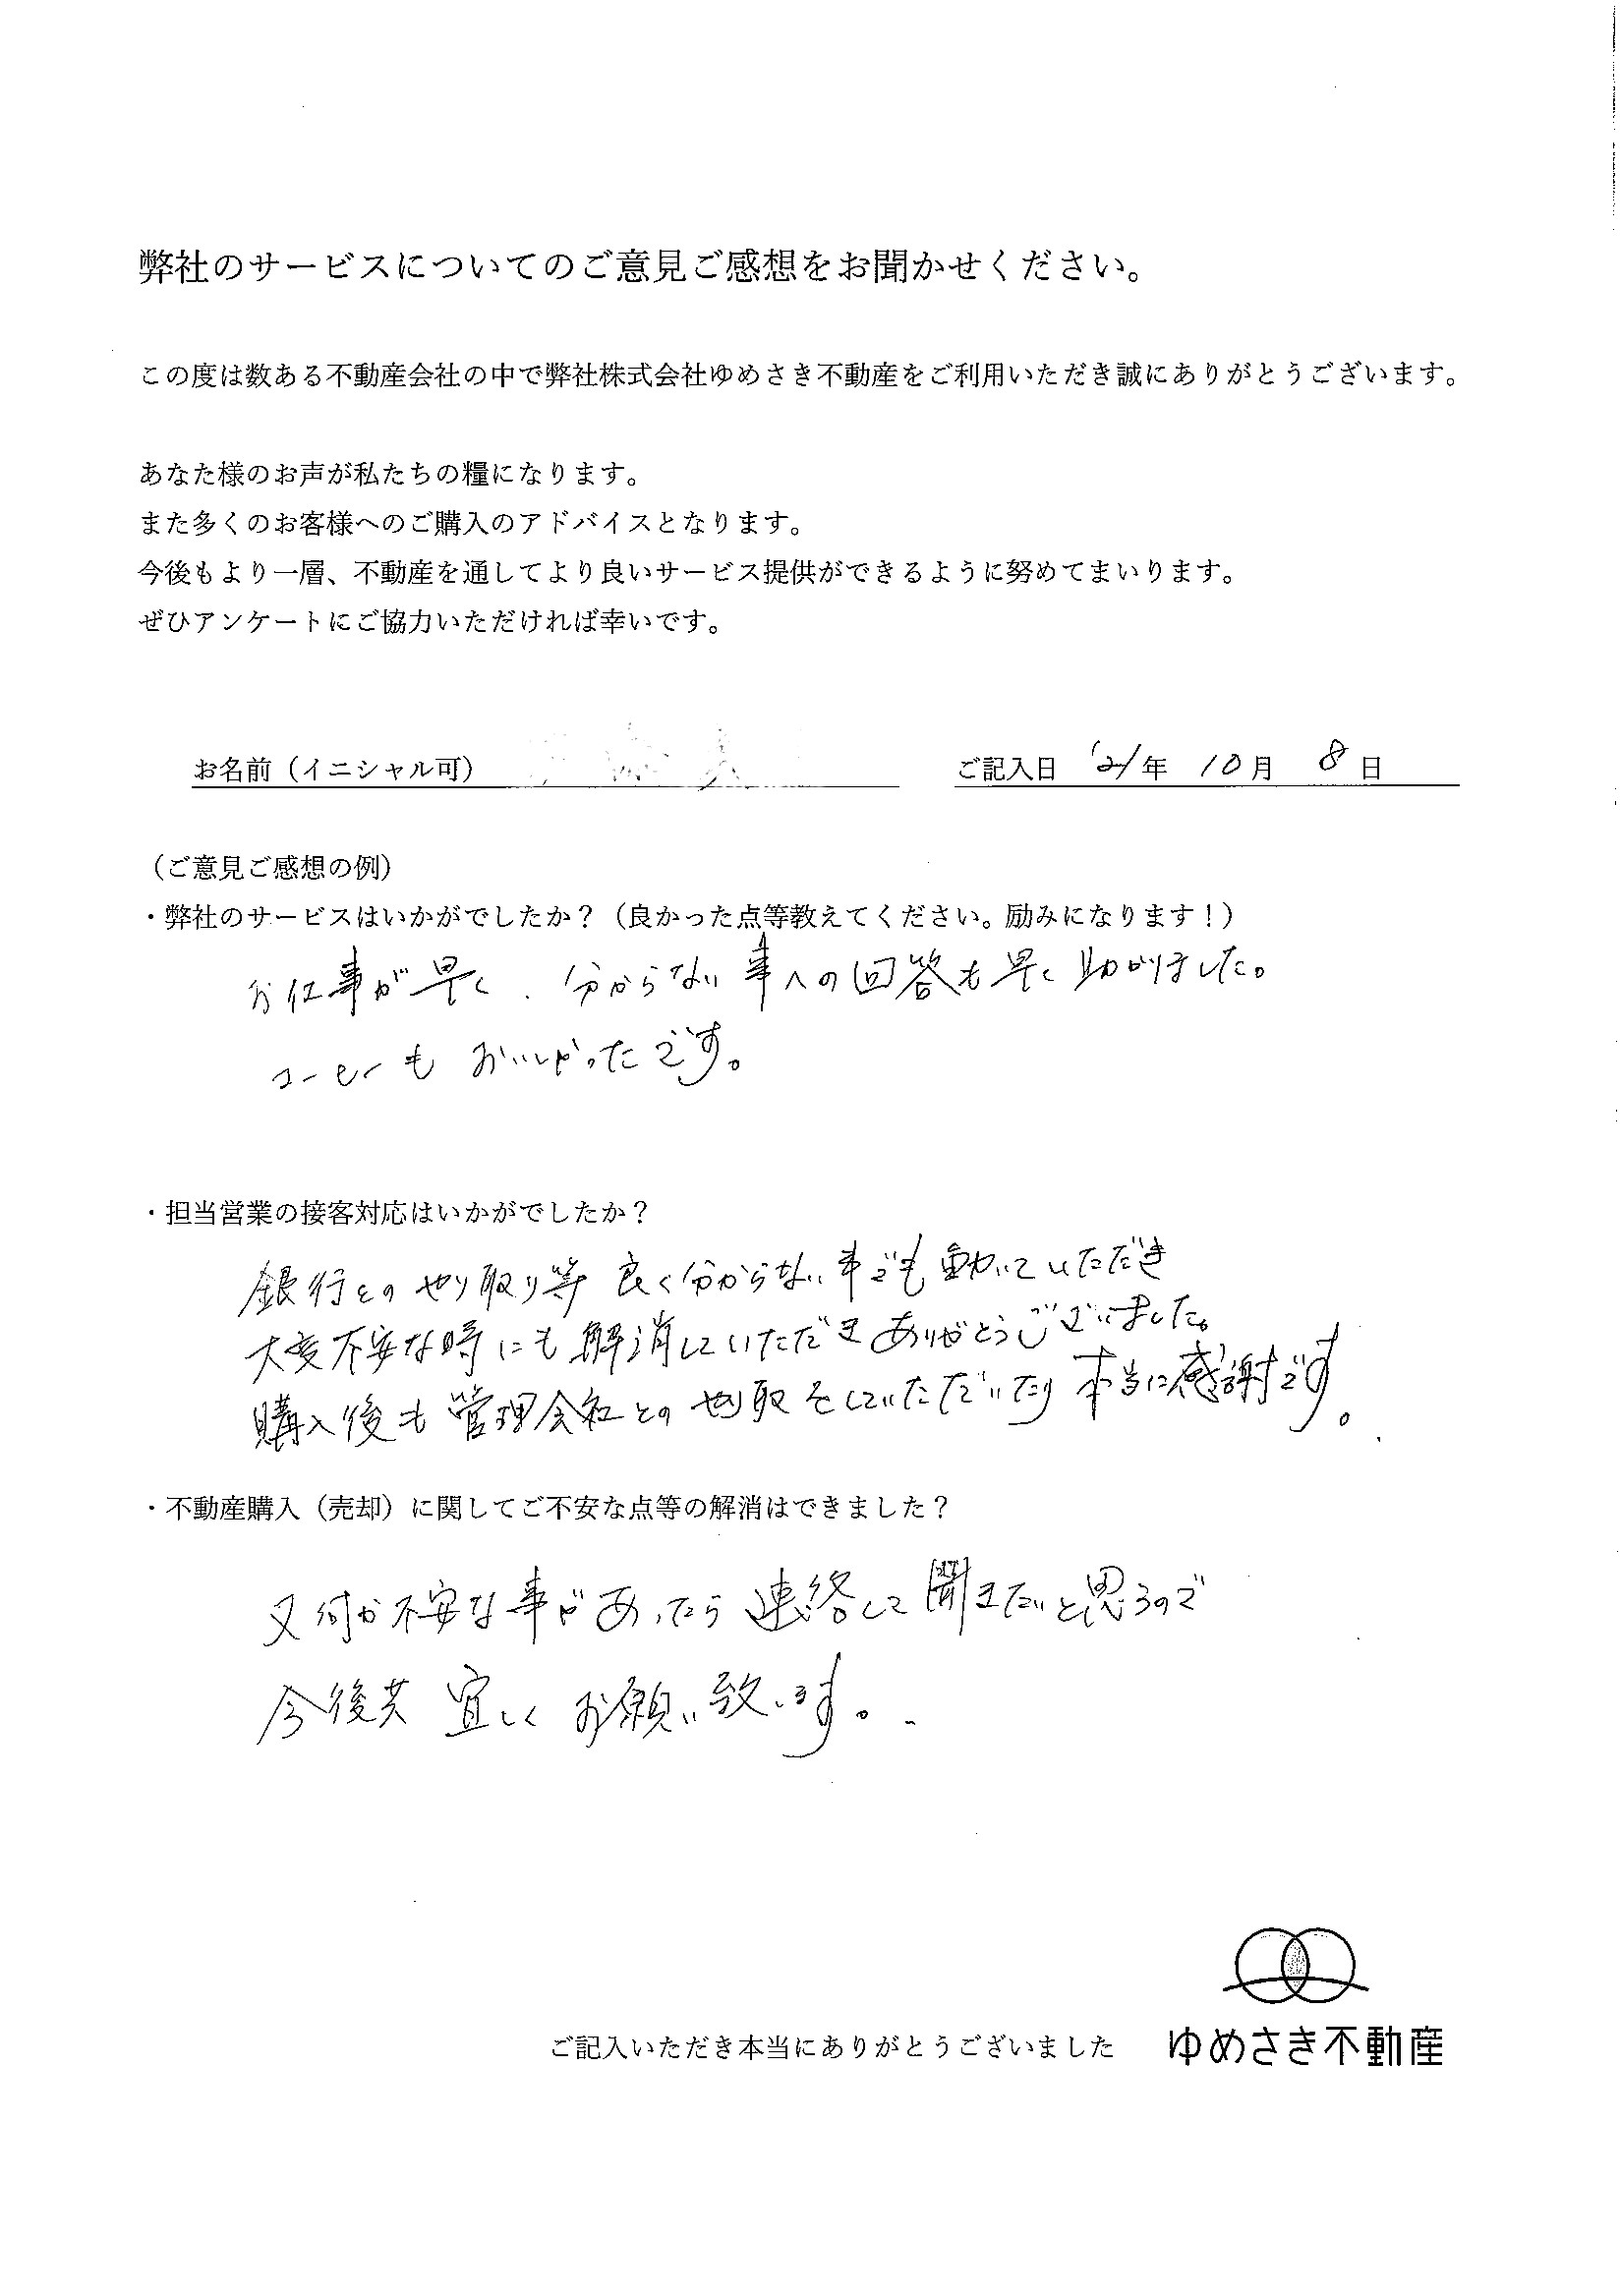 弊社のサービスについてのご意見ご感想をお聞かせください。
この度は数ある不動産会社の中で弊社株式会社ゆめさき不動産をご利用いただき誠にありがとうございます。
あなた様のお声が私たちの糧になります。
また多くのお客様へのご購入のアドバイスとなります。
今後もより一層、不動産を通してより良いサービス提供ができるように努めてまいります。
ぜひアンケートにご協力いただければ幸いです。
お名前（イニシャル可） ご記入日 '21年 10月 8日
（ご意見ご感想の例）
・弊社のサービスはいかがでしたか？（良かった点等教えてください。励みになります！）
お仕事が早く、分からない事への回答も早く助かりました。
コーヒーもおいしかったです。
・担当営業の接客対応はいかがでしたか？
銀行とのやり取り等 良く分からない事でも動いていただき
大変不安な時にも解消していただきありがとうございました。
購入後も管理会社とのやり取をしていただいたり本当に感謝です。
・不動産購入（売却）に関してご不安な点等の解消はできました？
又何か不安な事があったら連絡して聞きたいと思うので
今後共宜しくお願い致します。
ご記入いただき本当にありがとうございました
ゆめさき不動産